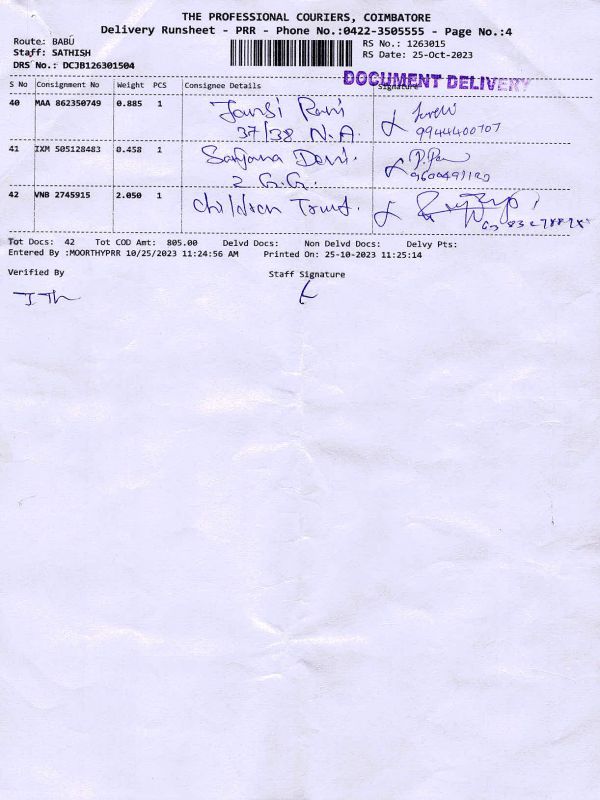 THE PROFESSIONAL COURIERS, COIMBATORE
Delivery Runsheet - PRR - Phone No.:0422-3505555 - Page No.:4
Route: BABU
RS No.: 1263015
Staff: SATHISH
RS Date: 25-Oct-2023
DRS No.: DCJB126301504
DOCUMENT DELIVERY
S No Consignment No Weight PCS Consignee Details Signature
40 MAA 862350749 0.885 1 Jansi Rani
37/38 N.A. 9944400707
41 IXM 505128483 0.458 1 Devi.
2 G.G. 9600491120
42 VNB 2745915 2.050 1 Children Trust.
Tot Docs: 42 Tot COD Amt: 805.00 Delvd Docs: Non Delvd Docs: Delvy Pts:
Entered By :MOORTHYPRR 10/25/2023 11:24:56 AM Printed On: 25-10-2023 11:25:14
Verified By Staff Signature